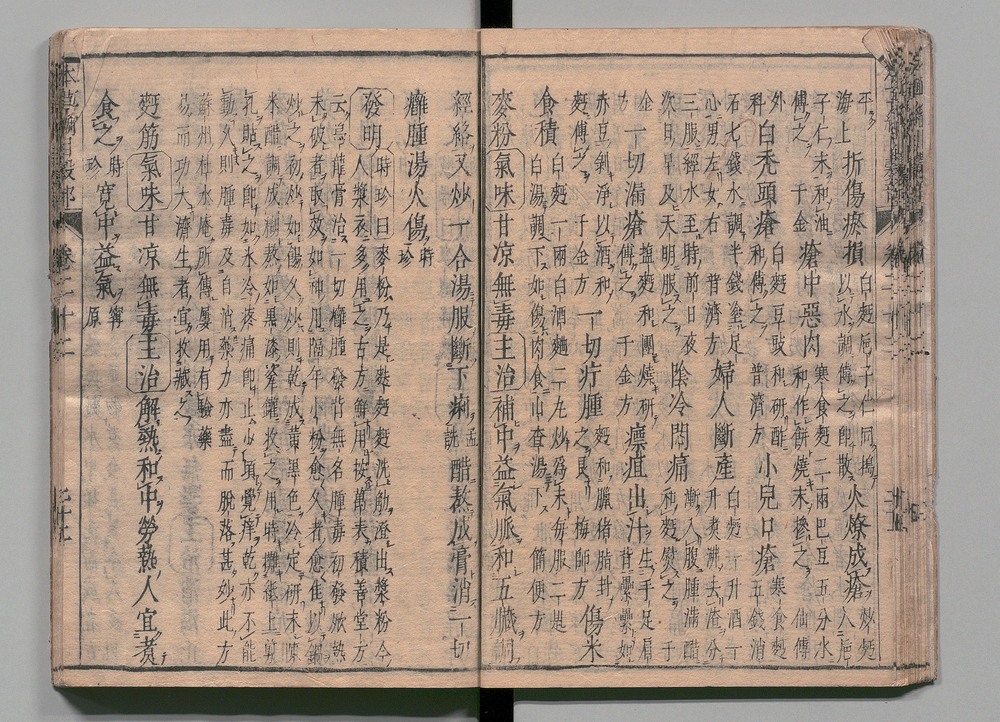 平
海上 折傷瘀損 白麪巵子仁同搗以水調傅之即散 火燎成瘡 炒麪入巵
子仁末和油傅之 千金 瘡中惡肉 寒食麪二兩巴豆五分水和作餅燒末摻之 仙傳
外科 白禿頭瘡 白麪豆豉和研酢和傅之 普濟方 小兒口瘡 寒食麪五錢消
石七錢水調半錢塗足心男左女右 普濟方 婦人斷產 白麪一升酒一升煮沸去渣分
三服經水至時前日夜次日早及天明服之 陰冷悶痛 漸入腹腫滿醋和麪熨之 千
金方 一切漏瘡 鹽麪和團燒研傅之 千金方 瘭疽出汁 生手足肩背纍纍如
赤豆剝淨以酒和麪傅之 千金方 一切疔腫 麪和臘猪脂封之良 梅師方 傷米
食積 白麪一兩白酒麯二丸炒爲末每服二匙白湯調下如傷肉食山查湯下 簡便方
麥粉 氣味 甘凉無毒 主治 補中益氣脈和五臟調
經絡又炒一合湯服斷下痢 孟詵 醋熬成膏消一切
癰腫湯火傷 時珍
發明 時珍曰麥粉乃是麩麪麪洗觔澄出漿粉今
人漿衣多用之古方鮮用按萬表積善堂方
云烏龍膏治一切癰腫發背無名腫毒初發焮熱
未破者取效如神用隔年小粉愈久者愈佳以鍋
炒之初炒如餳久炒則乾成黃黑色冷定研末陳
米醋調成糊熬如黑漆瓷罐收之用時攤紙上剪
孔貼之即如氷冷疼痛即止少頃覺痒乾亦不能
動久則腫毒自消藥力亦盡而脫落甚妙此方
蘇州杜水庵所傳屢用有驗藥
易而功大濟生者宜收藏之
麪筋 氣味 甘凉無毒 主治 解熱和中勞熱人宜煑
食之 時珍 寬中益氣 甯原
卷二十二